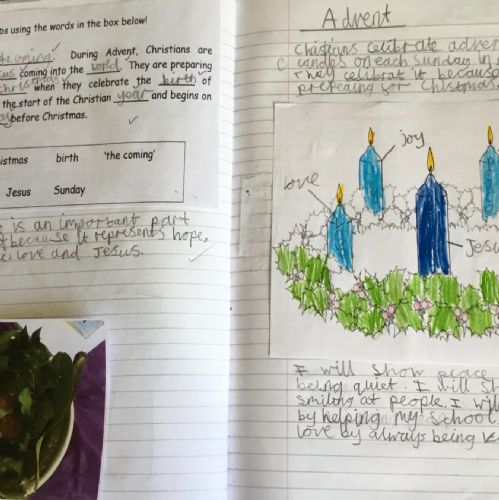 os using the words in the box below!
the coming'. During Advent, Christians are
sus coming into the world. They are preparing
Christmas when they celebrate the birth of
the start of the Christian year and begins on
ay before Christmas.
istmas birth 'the coming'
Jesus Sunday
is an important part
because it represents hope,
e, love and Jesus.
Advent
Christians celibrate adve
candles on each Sunday in
They celibrat it because
prepearing for Christmas
joy
love
Jesu
I will show peace
being quiet. I will Sh
smiling at people. I will
by helping my school
love by always being k